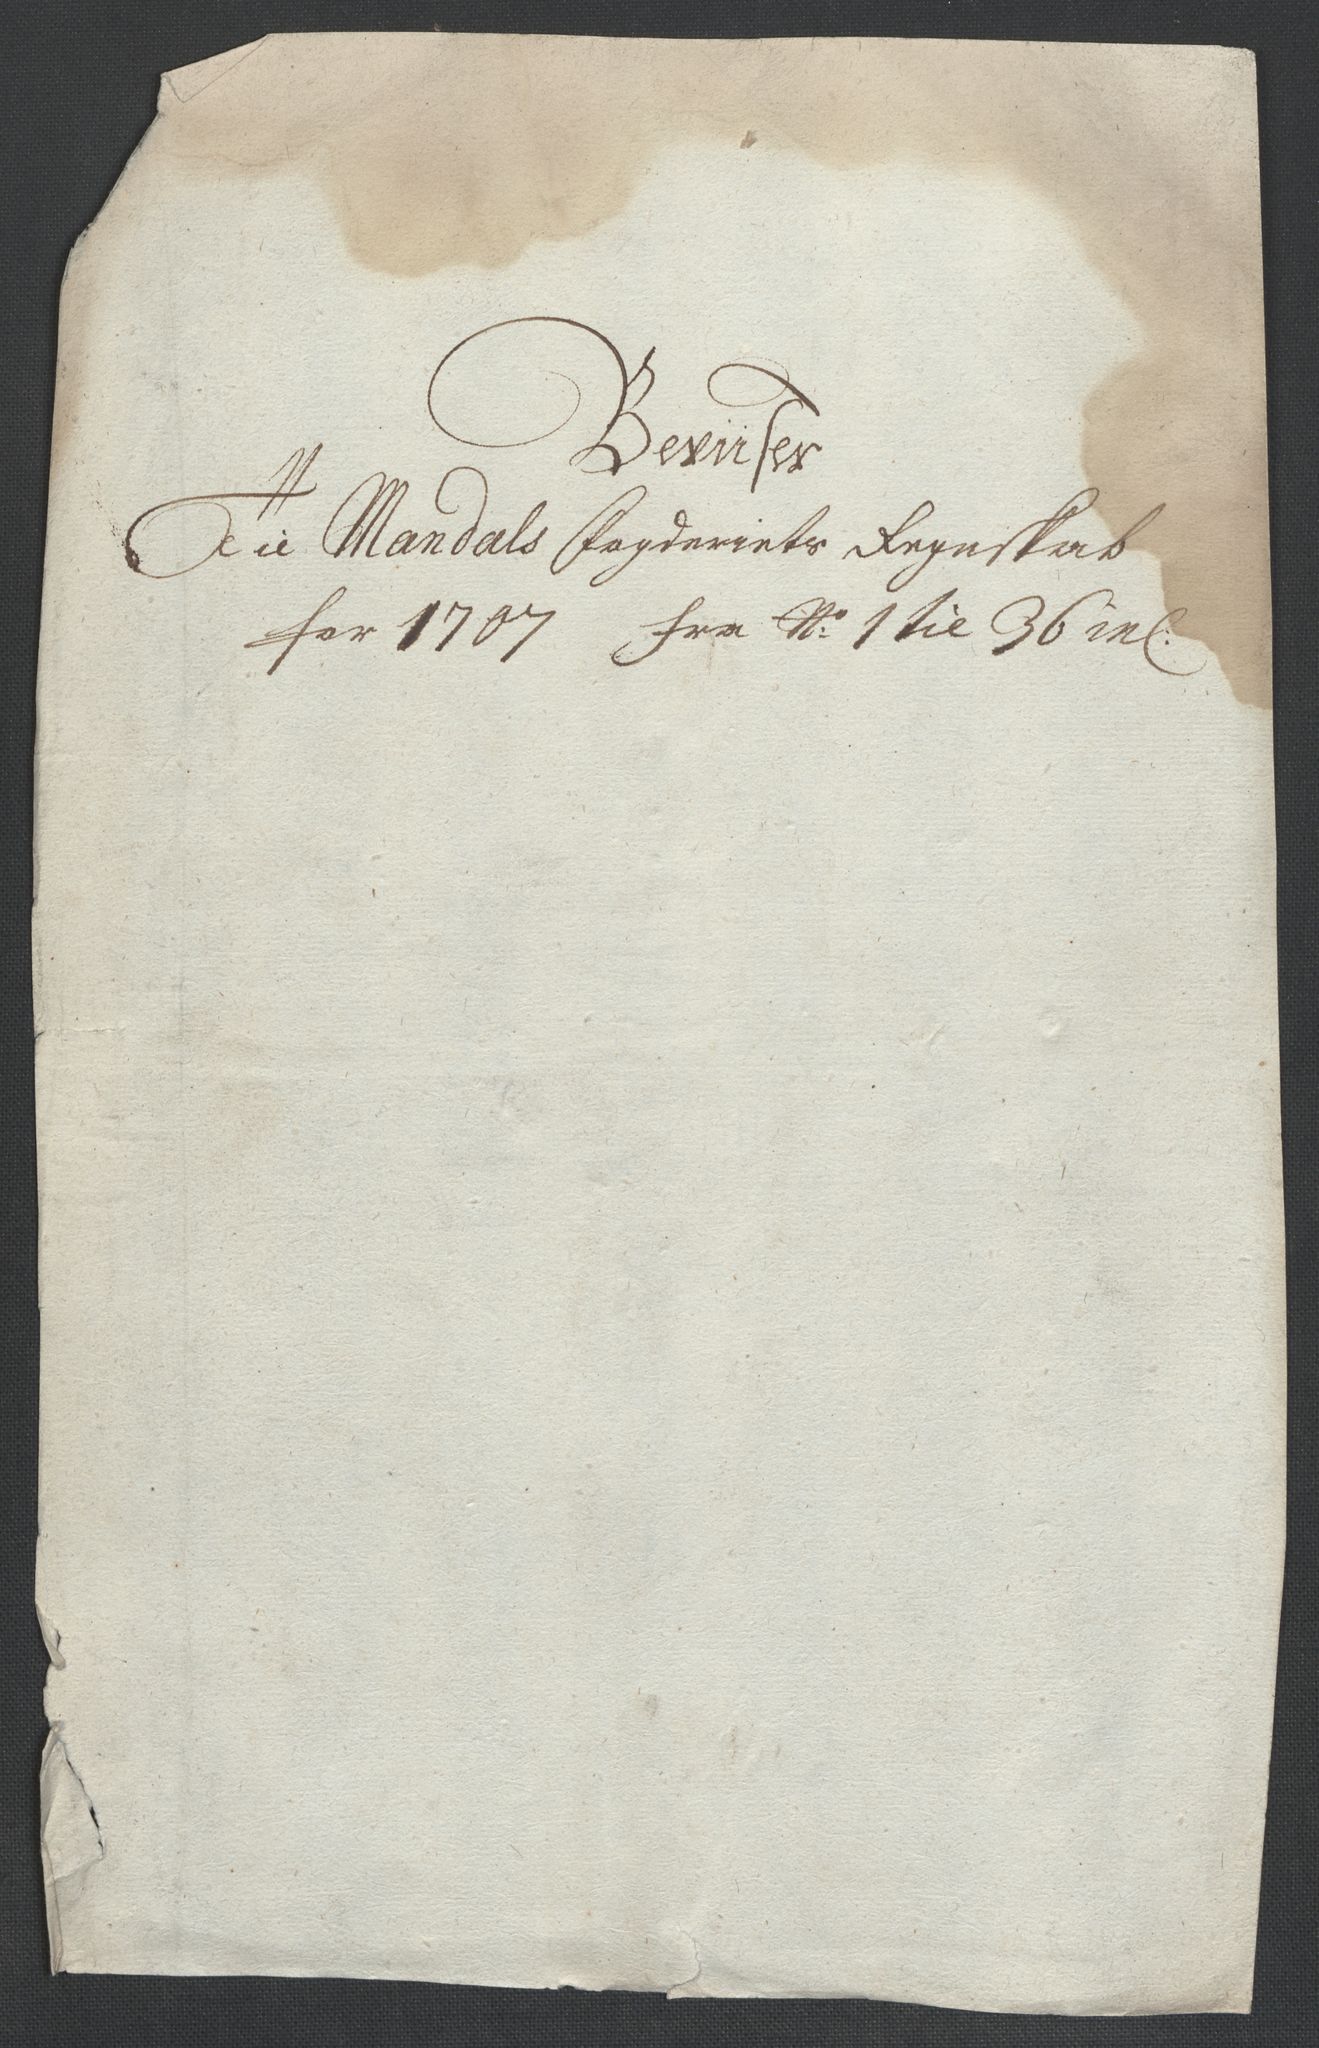 Beviiser
Til Mandals fogderiets Regnskab
for 1707 fra No: 1 til 36 inc: